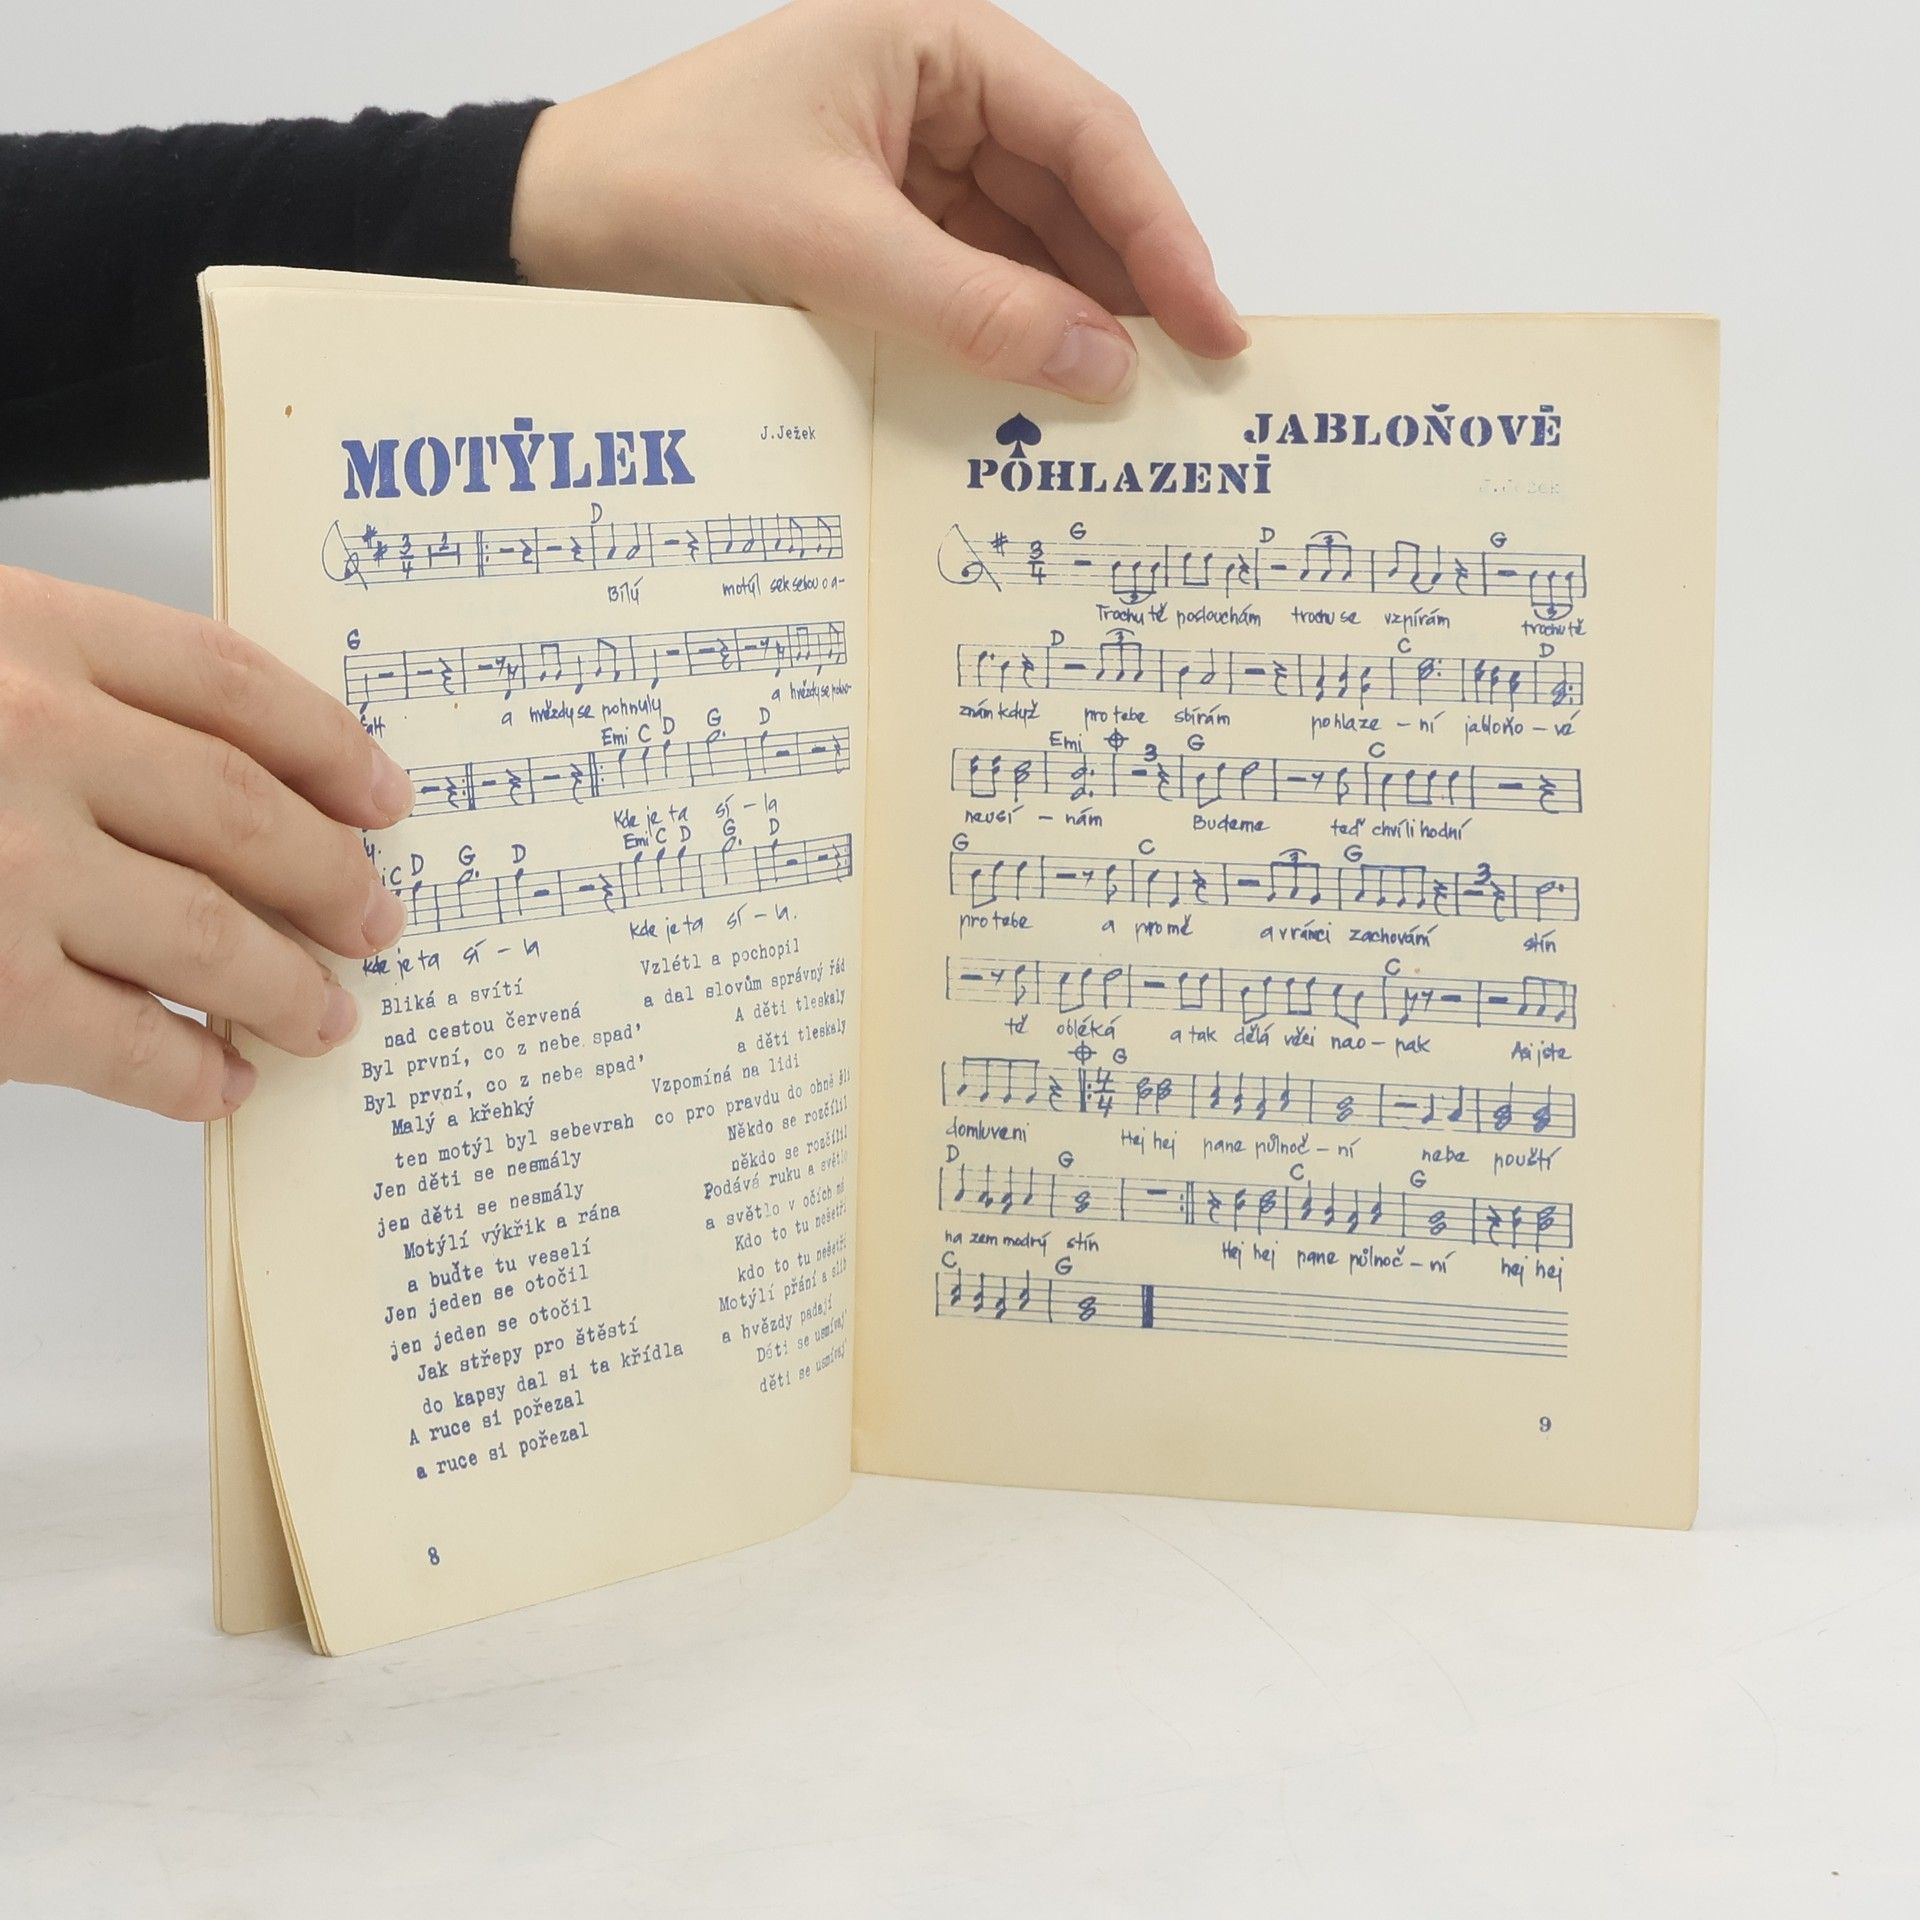 MOTÝLEK
J.Ježek
D
Bílý motýl sek sebou o a-
G
a hvězdy se pohnuly a hvězdy se pohnu-
Emi C D G D
ly.
Kde je ta sí – la
C D G D Emi C D G D
Kde je ta sí – la Kde je ta sí – la.
Bliká a svítí
nad cestou červená
Byl první, co z nebe spad'
Byl první, co z nebe spad'
Malý a křehký
ten motýl byl sebevrah
Jen děti se nesmály
jen děti se nesmály
Motýlí výkřik a rána
a buďte tu veselí
Jen jeden se otočil
jen jeden se otočil
Jak střepy pro štěstí
do kapsy dal si ta křídla
A ruce si pořezal
a ruce si pořezal
Vzlétl a pochopil
a dal slovům správný řád
A děti tleskaly
a děti tleskaly
Vzpomíná na lidi
co pro pravdu do ohně šli
Někdo se rozčílil
někdo se rozčílil
Podává ruku a světlo
a světlo v očích má
Kdo to tu nešetří
kdo to tu nešetří
Motýlí přání a slib
a hvězdy padají
Děti se usmívaj'
děti se usmívaj'
8
JABLOŇOVÉ
POHLAZENÍ
J.Ježek
G D G
3 4 3 3
Trochu tě poslouchám trochu se vzpírám trochu tě
D C D
3
znám když pro tebe sbírám pohlaze – ní jabloňo – vé
Emi G C
3
neusí – nám Budeme teď chvíli hodní
G C G
3 3
pro tebe a pro mě a v rámci zachování stín
C
tě obléká a tak dělá věci nao – pak Asi jste
G
4 4
domluveni Hej hej pane půlnoč – ní nebe pouští
D G C G
na zem modrý stín Hej hej pane půlnoč – ní hej hej
C G
9